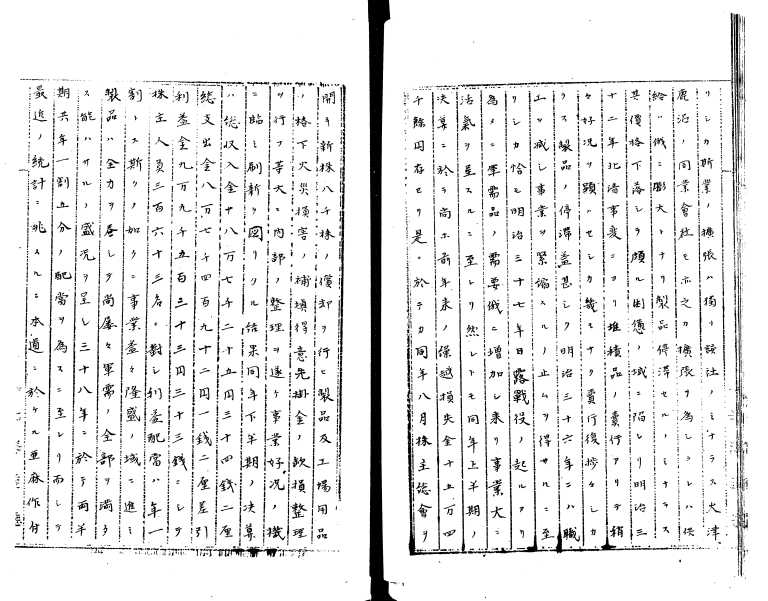 リシカ斯業ノ擴張ハ獨リ該社ノミナラス大津
鹿沼ノ同業會社モ亦之カ擴張ヲ為シタレハ供
給ハ俄ニ膨大トナリ製品停滞セルノミナラス
其價格下落シテ頗ル困憊ノ域ニ陥レリ明治三
十三年北清事変ニヨリ堆積品ノ賣行アリテ稍
々好況ヲ顕ハセシカ幾モナク賣行復捗々シカ
ラス製品ノ停滞益甚シク明治三十六年ニハ職
工ヲ減シ事業ヲ緊縮スルノ止ムヲ得サルニ至
リシカ恰モ明治三十七年日露戰役ノ起ルアリ
為メニ軍需品ノ需要俄ニ増加シ来リ事業大ニ
活氣ヲ呈スルニ至レリ然レトモ同年上半期ノ
決算ニ於テ尚ホ前年来ノ繰越損失金十五万四
千餘円存セリ是ニ於テカ同年八月株主総會ヲ
開キ新株八千株ノ償却ヲ行ヒ製品及工場用品
ノ格下火災損害ノ補填得意先掛金ノ欠損整理
ヲ行フ等大ニ内部ノ整理ヲ遂ケ事業好況ノ機
ニ臨ミ刷新ヲ図リタル結果同年下半期ノ決算
ハ総収入金十八万七千二十五円三十四銭二厘
総支出金八万七千四百九十二円一銭二厘差引
利益金九万九千五百三十三円三十三銭ニシテ
株主人員三百六十三名ニ對シ利益配當ハ年一
割トス斯クノ如クニ事業益々隆盛ノ域ニ進ミ
製品ハ全力ヲ尽シテ尚屡々軍需ノ全部ヲ満タ
ス能ハサルノ盛況ヲ呈シ三十八年ニ於テ両半
期共年一割五分ノ配當ヲ為スニ至レリ而シテ
最近ノ統計ニ兆スルニ本道ニ於ケル亜麻作付